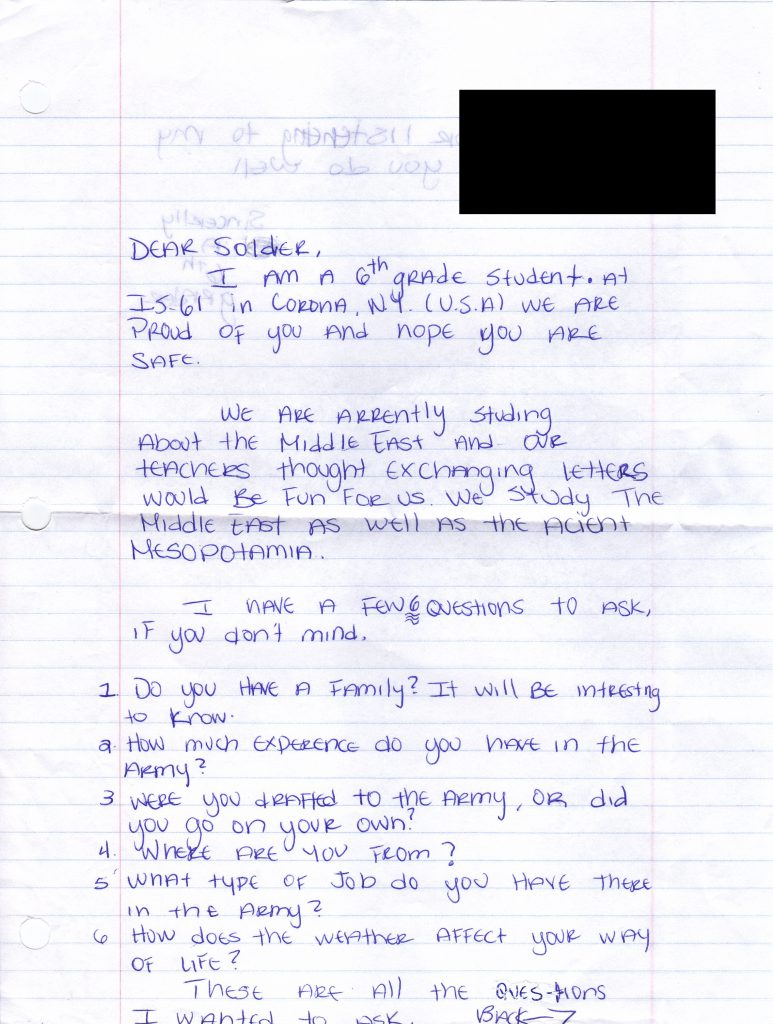 DEAR SOldiER,
I AM A 6th gRADE Student. At
IS-61 in CORONA, N.Y. (U.S.A) WE ARE
PROUD OF you AND hope you ARE
SAFE.
WE ARE ARRENTly Studing
About the Middle EAST AND OUR
tEACHERS thought EXCHANGING lEttERS
would BE FUN FOR US. WE STUDY THE
MiddlE EAST AS WEll AS the ACIENT
MESOPOTAMIA.
I HAVE A FEW 6 QUESTIONS to ASK,
IF you don't mind.
1 Do you HAVE A FAMily? It will BE intREStng
to KNOW.
2. How much EXPERENCE do you HAVE in the
ARMY?
3 WERE you dRAFtEd to the ARMY, OR did
you go on your own?
4. WHERE ARE YOU FROM?
5 WHAT tYPE OF Job do you HAVE THERE
in thE ARMY?
6 How does the WEATHER AFFECT YOUR WAY
OF LIFE?
THESE ARE All the QUES-tIONS
I WANTED to ASK. BACK →
OR LISTENING to my
you do well
Sincerlly
6th